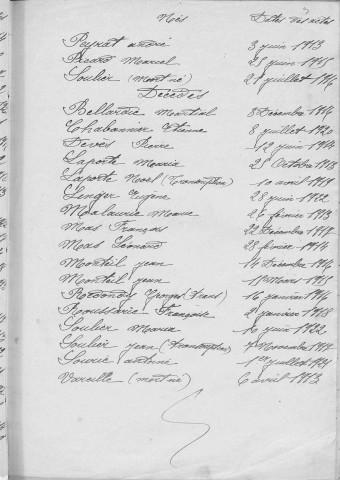 Nés Dates des actes
Peyrat andré 3 juin 1913
Picard Marcel 25 juin 1915
Soulier (mort né) 21 juillet 1916
Décédés
Bellardie Martial 8 Décembre 1914
Chabannier Etienne 8 juillet 1920
Devès Pierre 12 juin 1914
Laporte Maria 25 Octobre 1913
Laporte Noël (Transcription) 10 avril 1919
Leuger Eugène 28 juin 1922
Malaurie Marie 26 février 1913
Mas François 22 Décembre 1917
Mas Léonard 28 février 1914
Monteil jean 14 Décembre 1916
Monteil jean 11 Mars 1915
Reconday 16 janvier 1916
Roussarie Françoise 2 janvier 1918
Soulier Maria 10 juin 1922
Soulier jean (Transcription) 7 Novembre 1919
Sourie antoine 1er juillet 1921
Vareille (mort né) 6 avril 1913